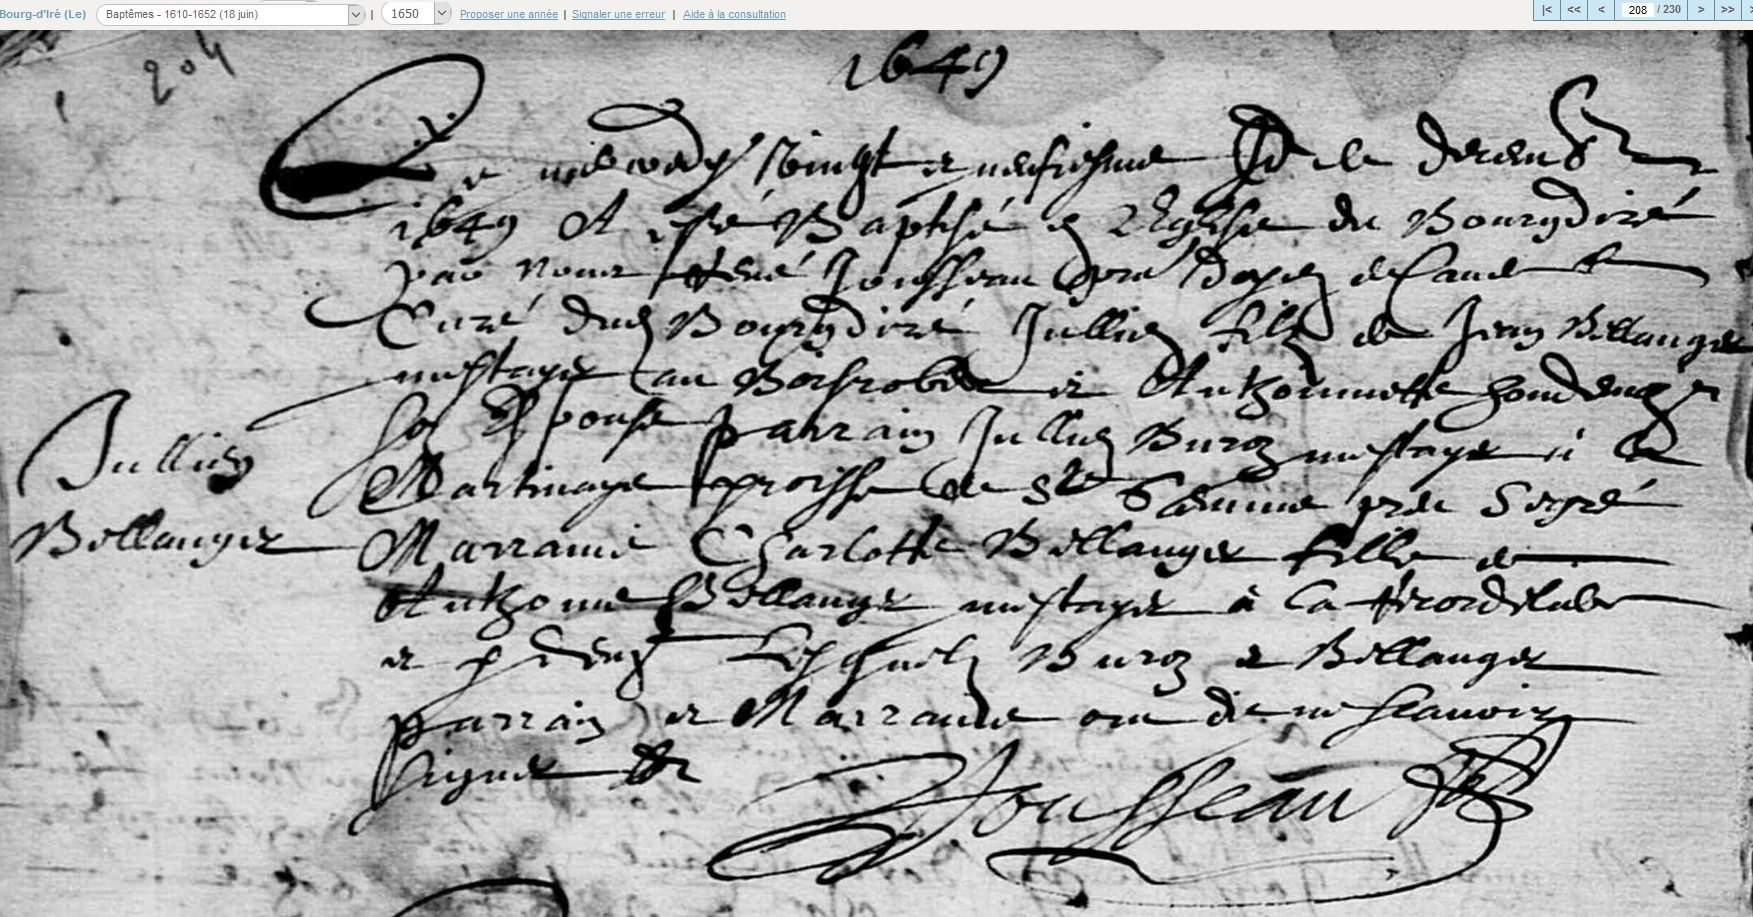 Bourg-d'Iré (Le) Baptêmes - 1610-1652 (18 juin) | 1650 Proposer une année | Signaler une erreur | Aide à la consultation |< << < 208 / 230 > >>
204
1649
Ce mercredy vingt et neufiesme Jo de decemb
1649 A esté Baptisé en l'Eglise du Bourgdiré
par nous René Jousseau doyen de Cande
Curé dud Bourgdiré Jullien filz de Jean Bellanger
mestayer au Boisrobe et Anthoinette
son Espouse parrain Jullien Buron mestayer à la
Martinaye paroisse de Ste Gemme pres Segré
Marraine Charlotte Bellanger fille de
Anthoine Bellanger mestayer à la
et p deux Lesquelz Buron et Bellanger
parrain et Marraine ont dit ne scavoir
signer
Jullien
Bellanger
Jousseau